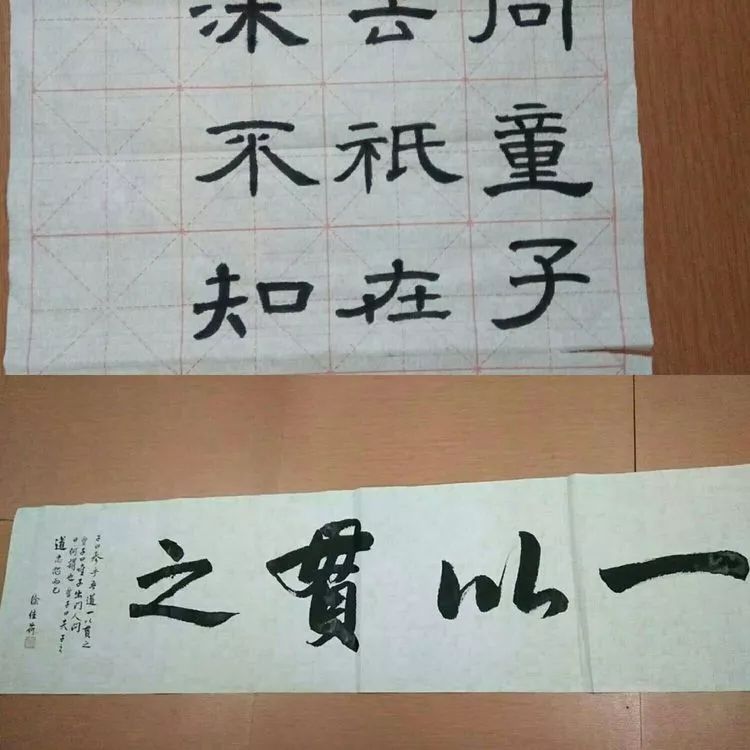 問童子
去祇在
深不知
一以貫之
子曰參乎吾道一以貫之
曾子曰唯子出門人問
曰何謂也曾子曰夫子之
道忠恕而已
徐佳